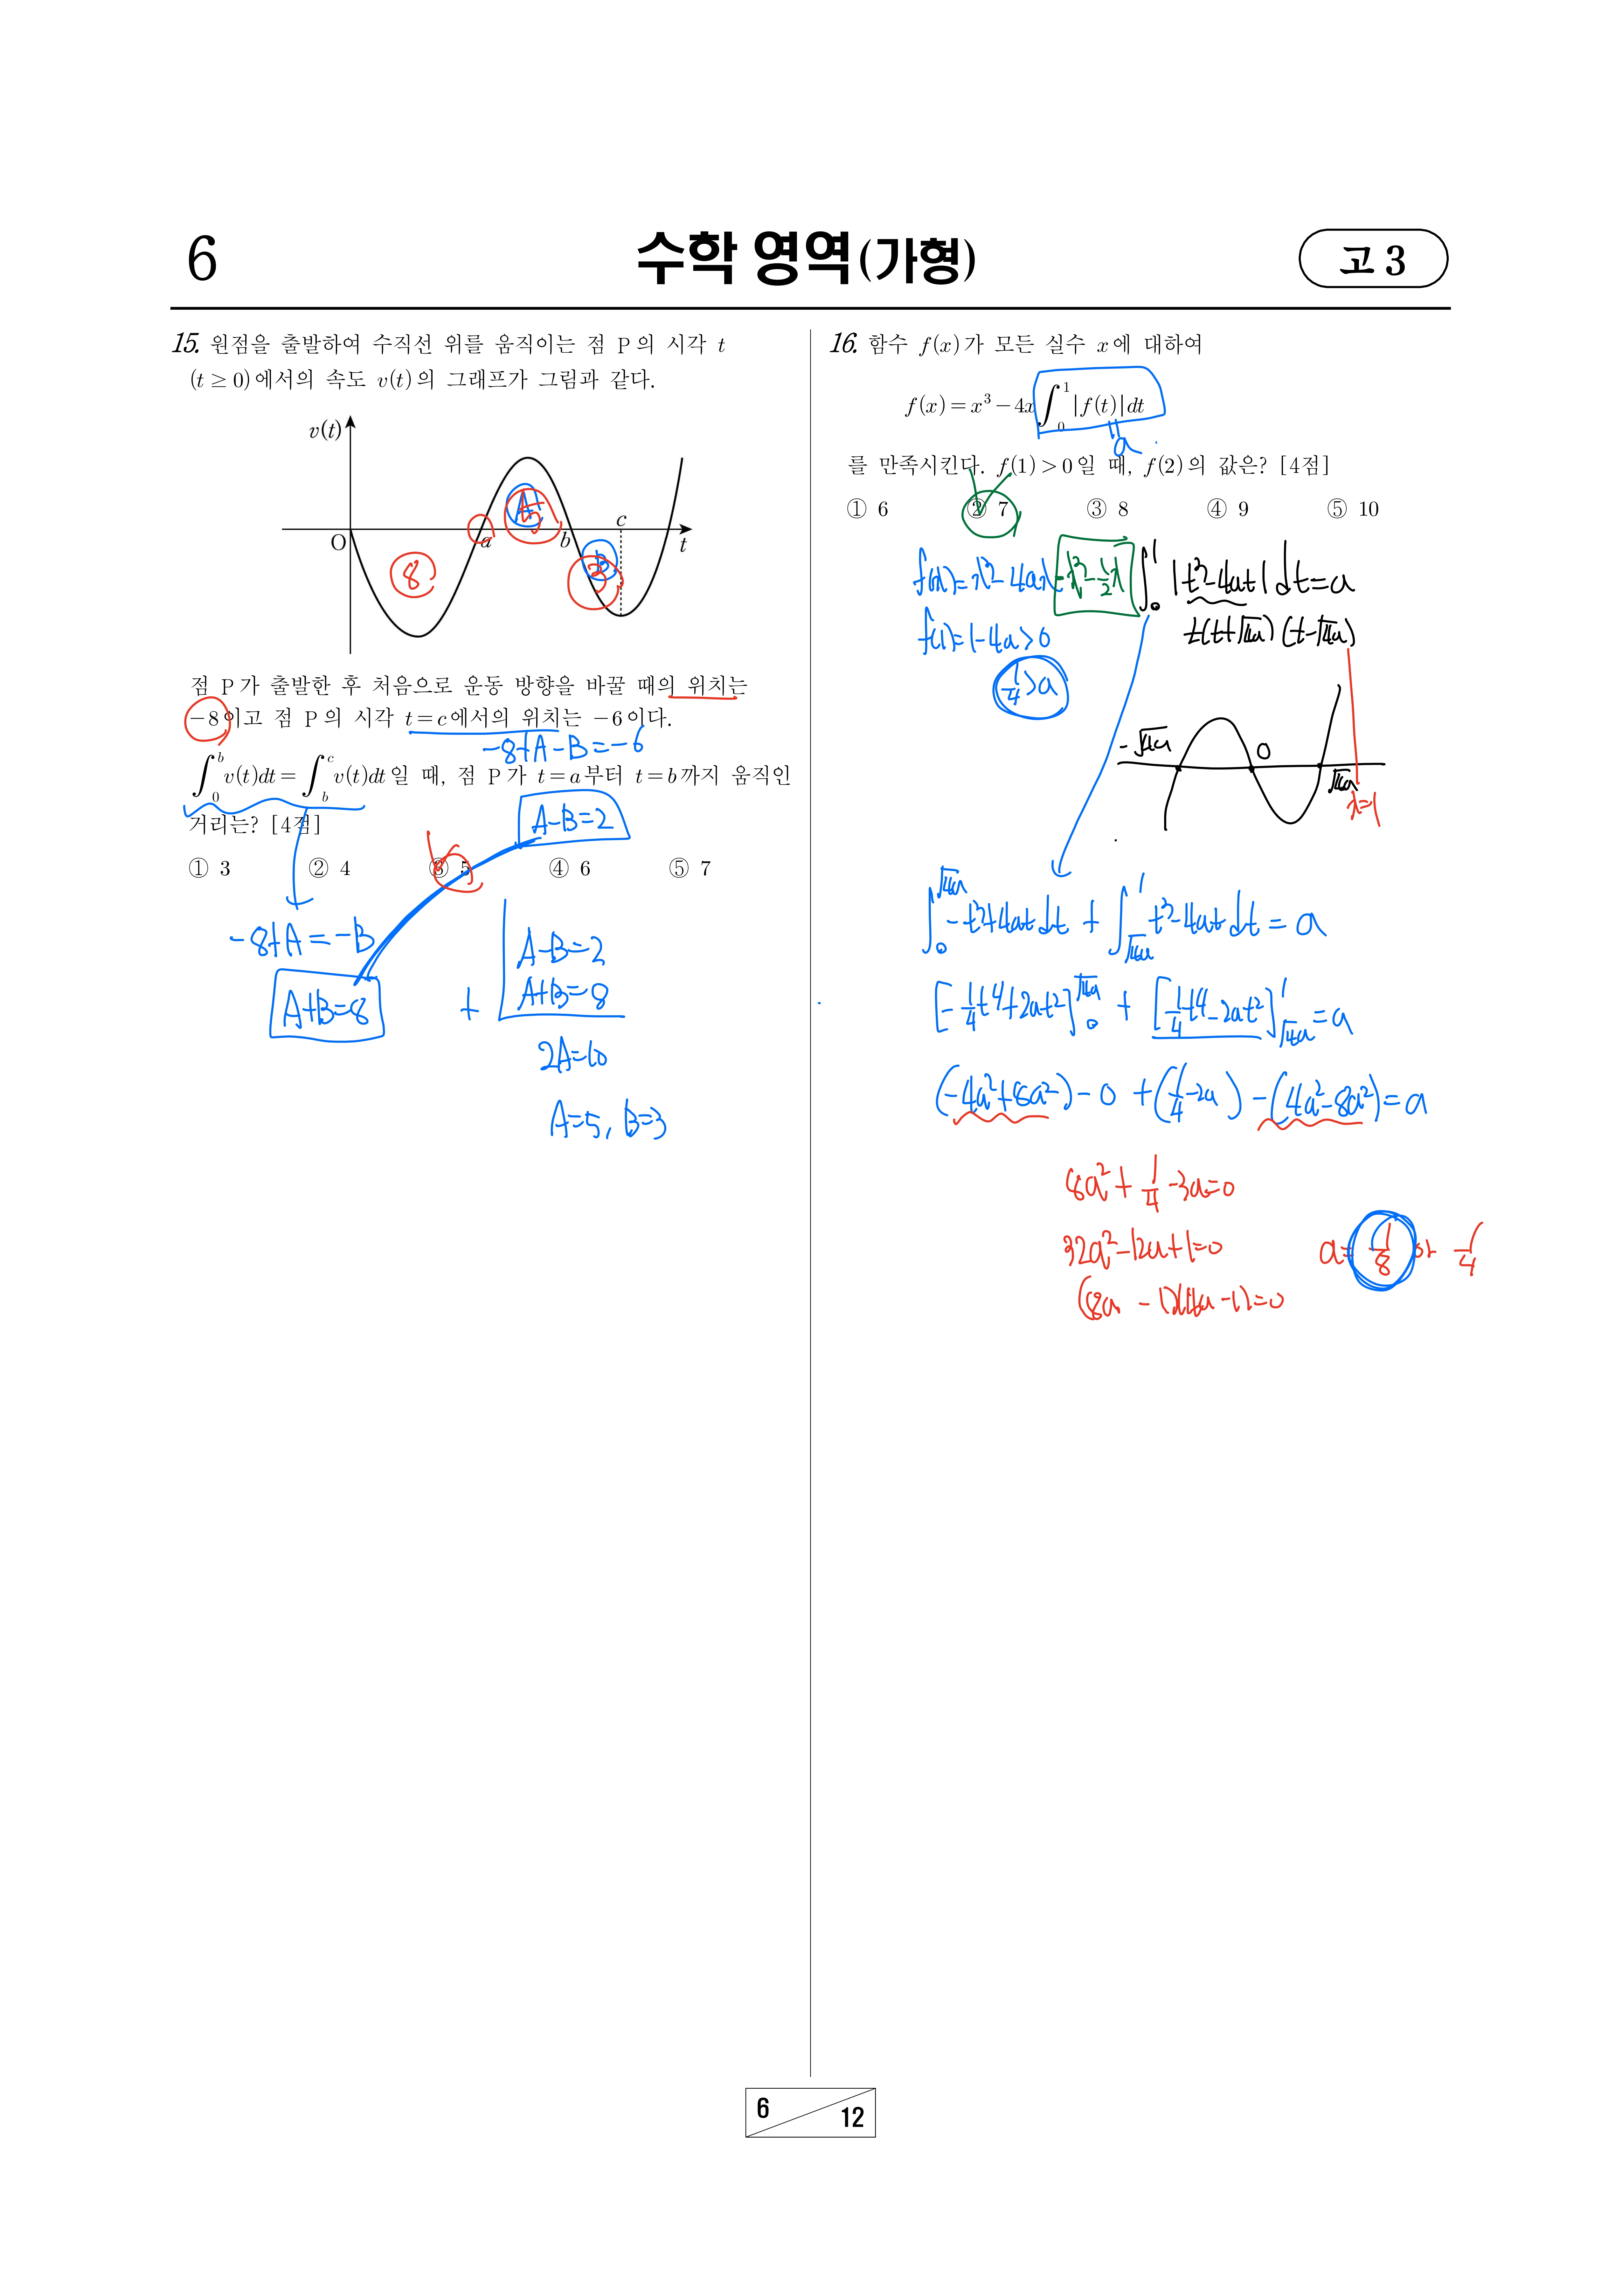 6
수학 영역(가형)
고 3
15. 원점을 출발하여 수직선 위를 움직이는 점 P의 시각 t
(t ≥ 0)에서의 속도 v(t)의 그래프가 그림과 같다.
v(t)
A
5
c
O
a
b
t
8
B
3
점 P가 출발한 후 처음으로 운동 방향을 바꿀 때의 위치는
−8이고 점 P의 시각 t=c에서의 위치는 −6이다.
-8+A-B=-6
∫₀ᵇ v(t)dt = ∫_b^c v(t)dt일 때, 점 P가 t=a부터 t=b까지 움직인
거리는? [4점]
A-B=2
① 3 ② 4 ③ 5 ④ 6 ⑤ 7
-8+A=-B
A+B=8
A-B=2
+ A+B=8
2A=10
A=5, B=3
16. 함수 f(x)가 모든 실수 x에 대하여
f(x)=x³−4x∫₀¹|f(t)|dt
a
를 만족시킨다. f(1)>0일 때, f(2)의 값은? [4점]
① 6 ② 7 ③ 8 ④ 9 ⑤ 10
f(x)=x³-4ax=x³-1/2x
∫₀¹|t³-4at|dt=a
f(1)=1-4a>0
t(t+√4a)(t-√4a)
1/4>a
-√4a
0
√4a
x=1
∫₀^√4a -t³+4at dt + ∫_√4a^1 t³-4at dt = a
[-1/4t⁴+2at²]₀^√4a + [1/4t⁴-2at²]_√4a^1 = a
(-4a²+8a²)-0+(1/4-2a)-(4a²-8a²)=a
8a²+1/4-3a=0
32a²-12a+1=0
a=1/8 or 1/4
(8a-1)(4a-1)=0
6
12